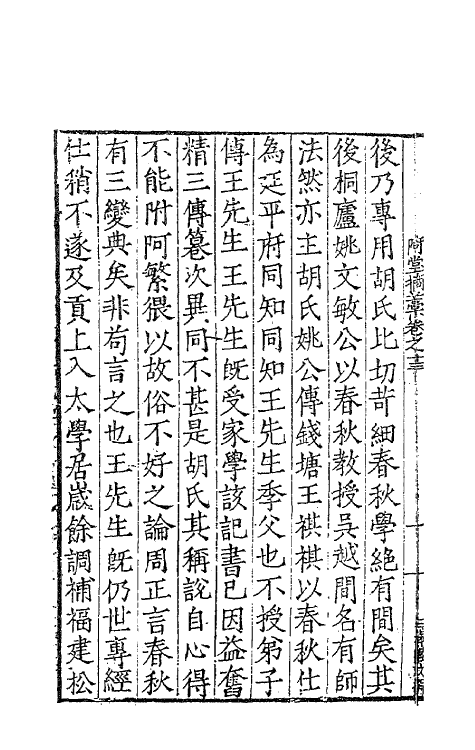 後乃專用胡氏比切苛細春秋學絶有間矣其
後桐廬姚文敏公以春秋教授吳越間名有師
法然亦主胡氏姚公傳錢塘王祺祺以春秋仕
為延平府同知同知王先生季父也不授弟子
傳王先生王先生旣受家學該記書已因益奮
精三傳纂次異同不甚是胡氏其稱說自心得
不能附阿繁猥以故俗不好之論周正言春秋
有三變典矣非苟言之也王先生旣仍世專經
仕稍不遂及貢上入太學居歲餘調補福建松